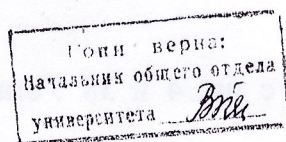 Копия верна:
Начальник общего отдела
университета